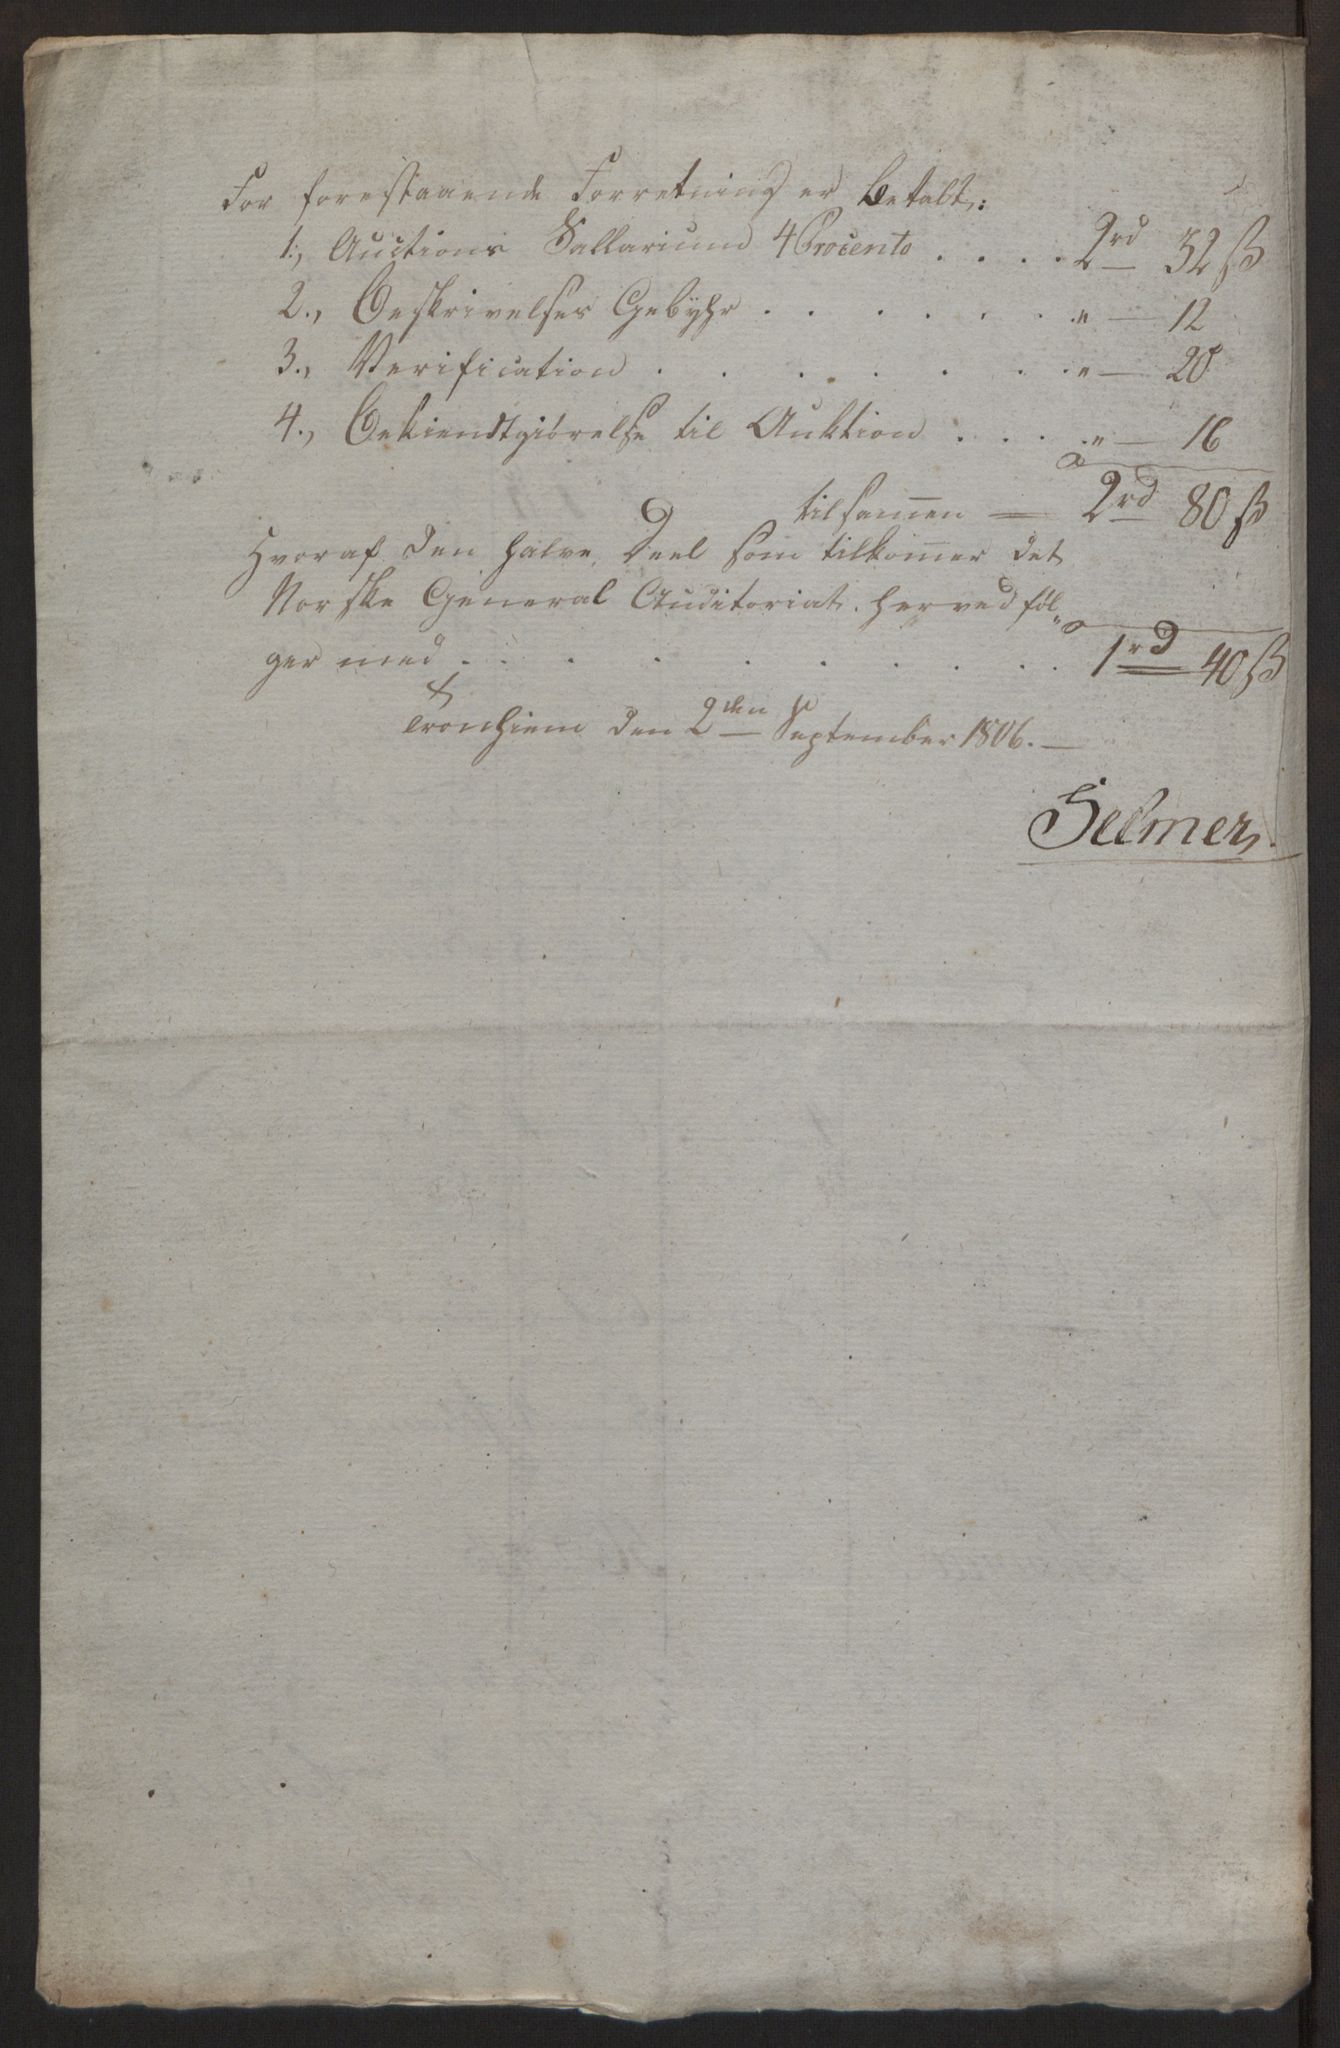 For forestaaende Forretning er betalt:
1., Auctions Sallarium 4 Procento . . . . 2rd 32 ß
2., Beskrivelses Gebyhr . . . . . . . " — 12
3., Verification . . . . . . . " — 20
4., Bekiendtgiörelse til Auktion . . . . " — 16
tilsam̄en — 2rd 80 ß
Hvoraf den halve Deel som tilkom̄er det
Norske General Auditoriat herved föl„
ger med . . . . . . . . . 1rd 40 ß
Tronhiem den 2den September 1806. —
Selmer